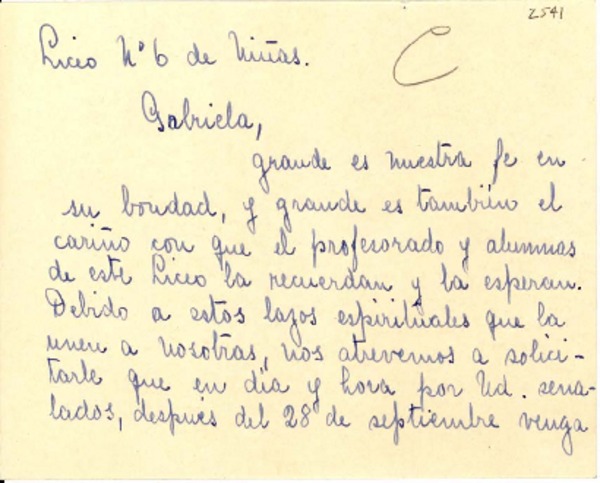 2541
Liceo Nº 6 de Niñas.
C
Gabriela,
grande es nuestra fe en
su bondad, y grande es también el
cariño con que el profesorado y alumnas
de este Liceo la recuerdan y la esperan.
Debido a estos lazos espirituales que la
unen a nosotras, nos atrevemos a solici-
tarle que en día y hora por Ud. seña-
lados, después del 28 de septiembre venga